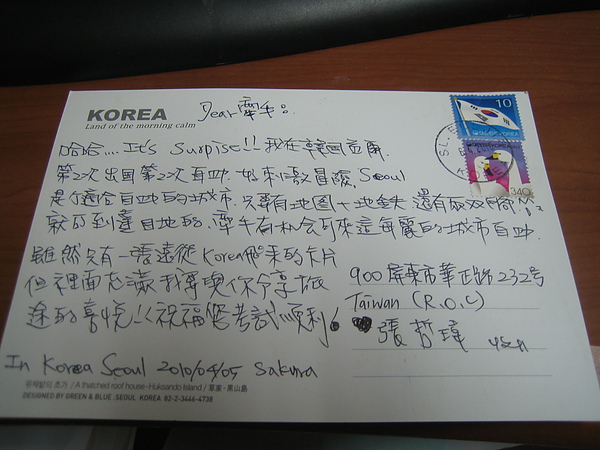 KOREA
Land of the morning calm
Dear 犛牛:
哈哈....It's Surprise!! 我在韓國首爾.
第二次出國第二次自助.
Seoul
是個適合自助的城市.只要有地圖+地鐵 還有
到目地的.犛牛有机会可來這美麗的城市自助.
雖然只有一張遠從Korea飛來的卡片
但裡面充滿我要與你分享旅
途的喜悅!!祝福您考試順利!
In Korea Seoul 2010/04/05 Sakura
10
340
900 屏東市華正路232号
Taiwan (R.O.C)
張哲瑋
/ A thatched roof house-Huksando Island / 草家-黑山島
DESIGNED BY GREEN & BLUE. SEOUL KOREA 82-2-3446-4738